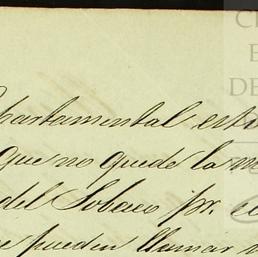 partamental este
que no quede la m
del Tabaco pr. el
se pueden llamar